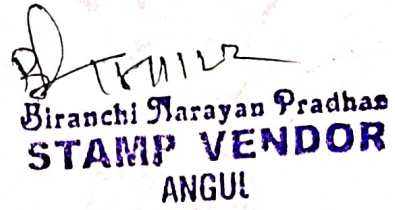 Biranchi Narayan Pradhan
STAMP VENDOR
ANGUL